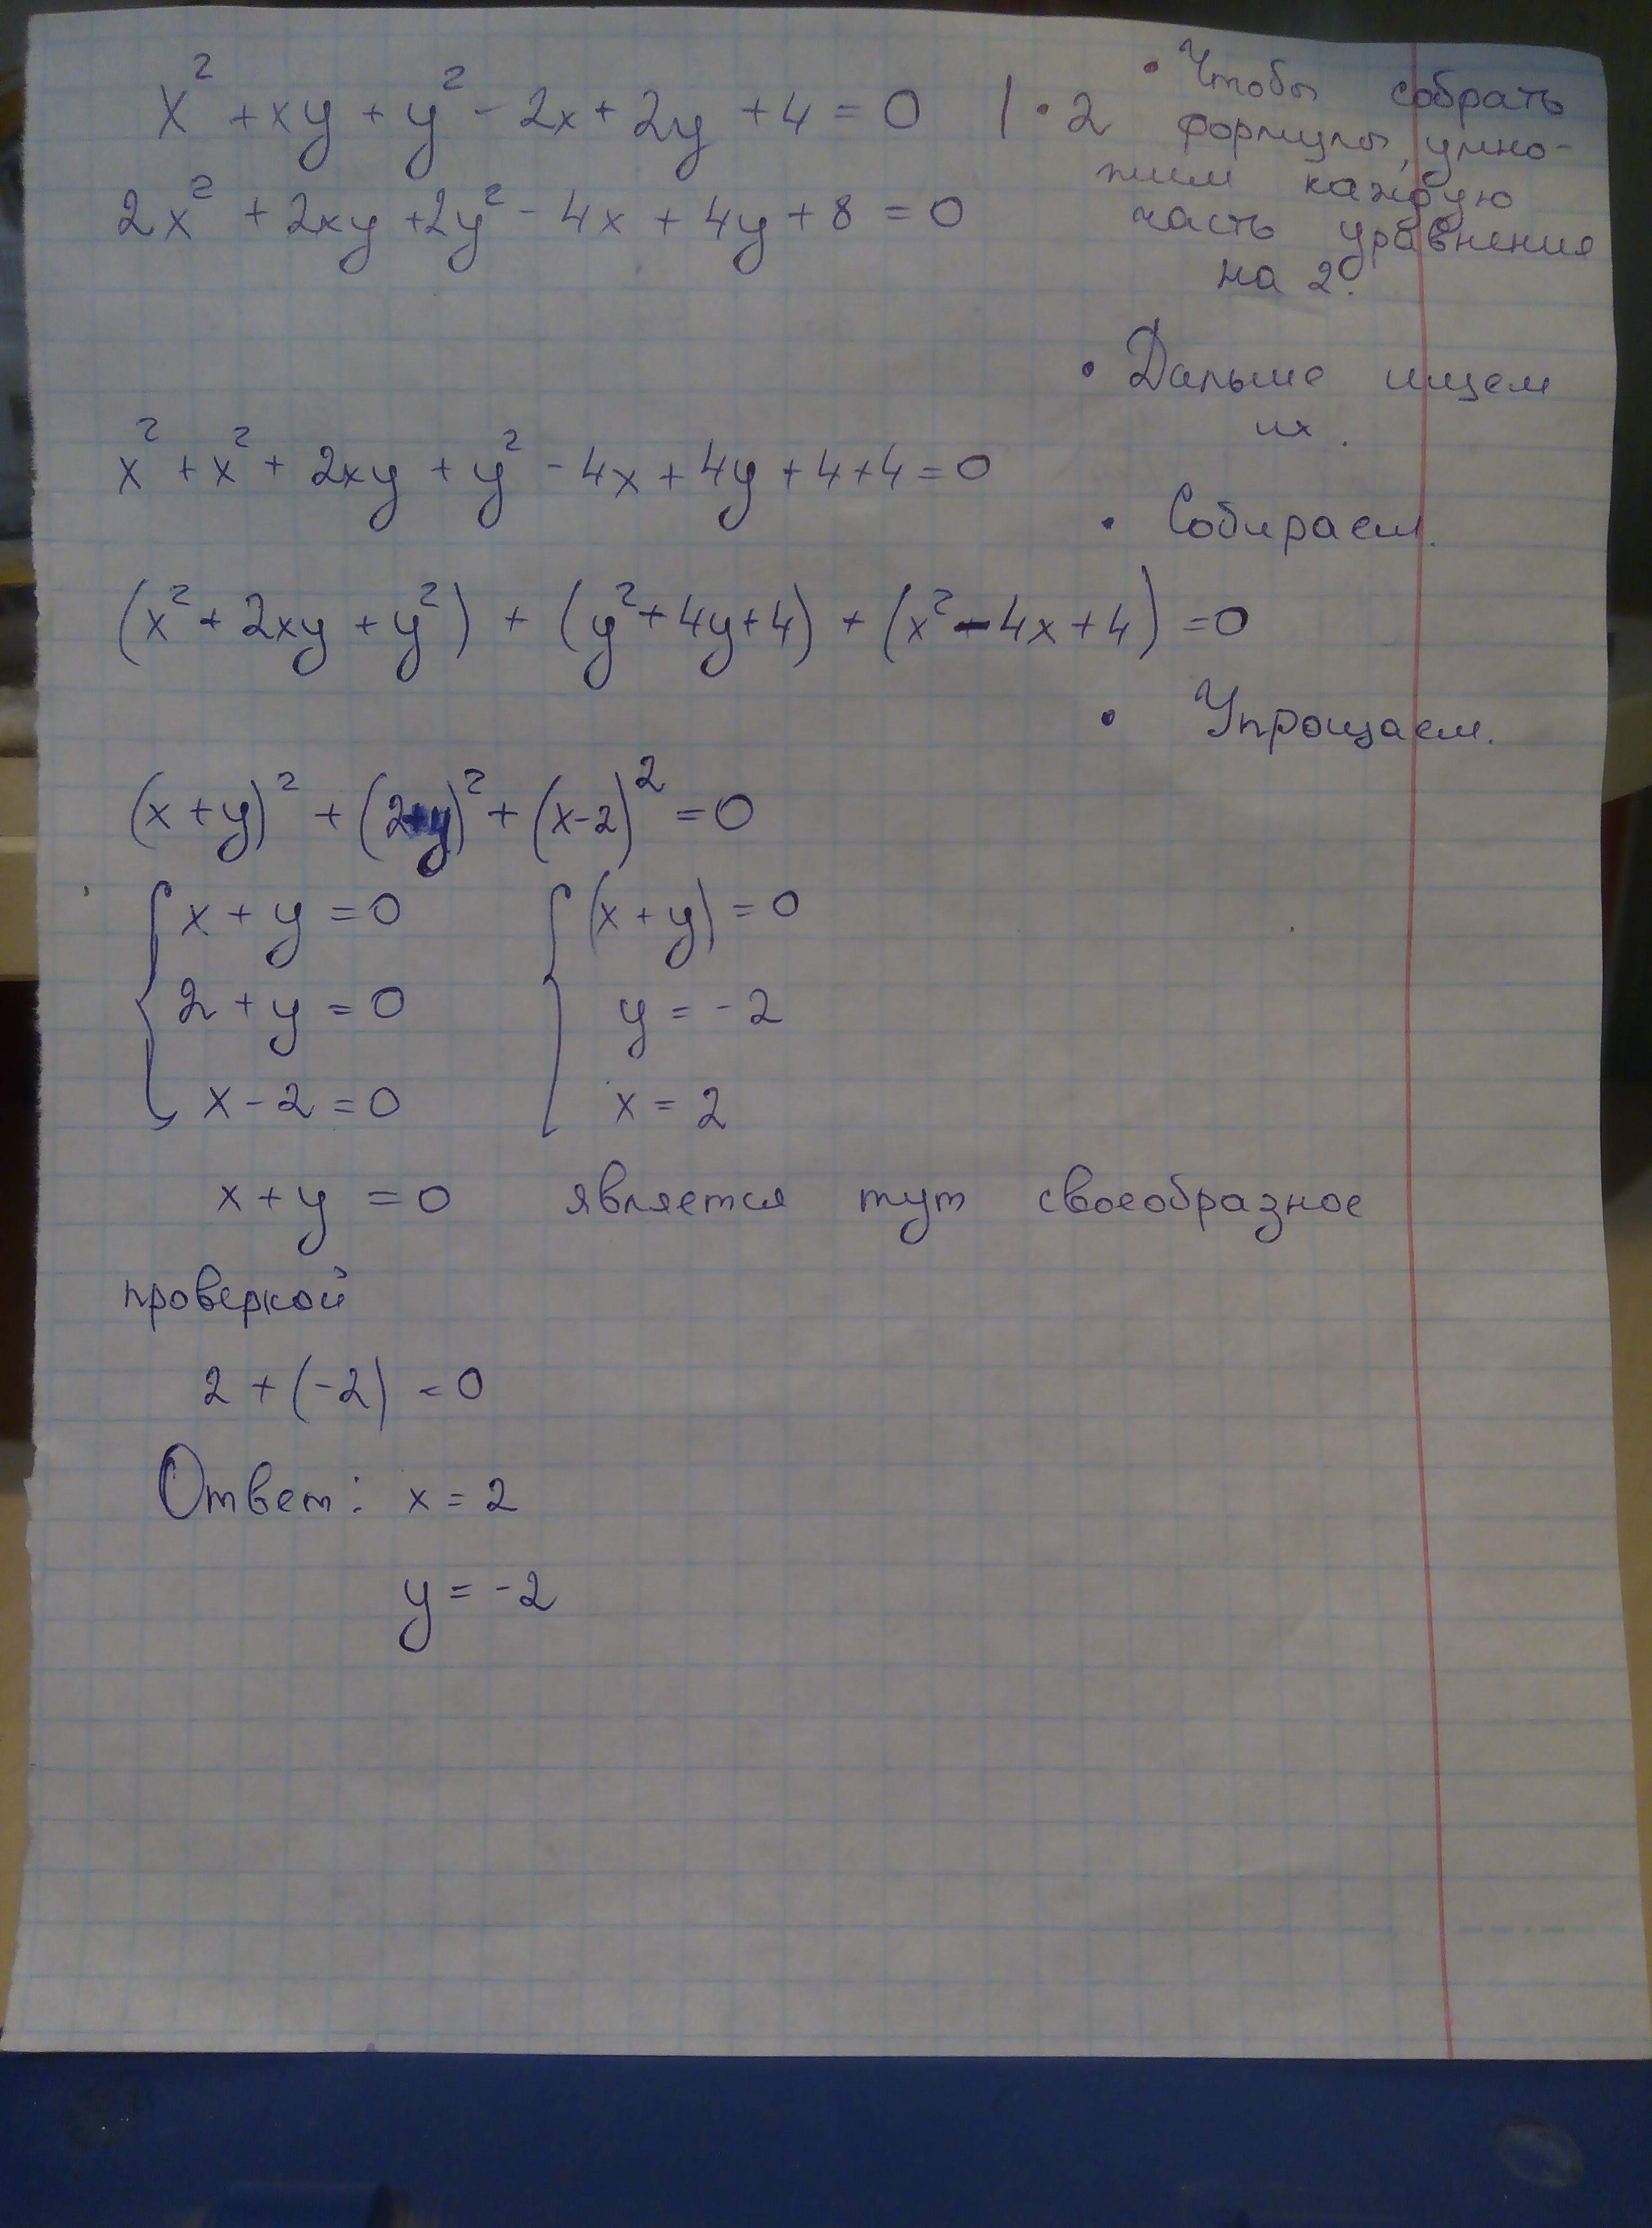 x² + xy + y² - 2x + 2y + 4 = 0 | · 2
• Чтобы собрать
формулы, умно-
жим каждую
часть уравнения
на 2.
2x² + 2xy + 2y² - 4x + 4y + 8 = 0
• Дальше ищем
их.
x² + x² + 2xy + y² - 4x + 4y + 4 + 4 = 0
• Собираем.
(x² + 2xy + y²) + (y² + 4y + 4) + (x² - 4x + 4) = 0
• Упрощаем.
(x + y)² + (2+y)² + (x-2)² = 0
{ x + y = 0 { (x + y) = 0
2 + y = 0 y = -2
x - 2 = 0 x = 2
x + y = 0 является тут своеобразное
проверкой
2 + (-2) = 0
Ответ: x = 2
y = -2